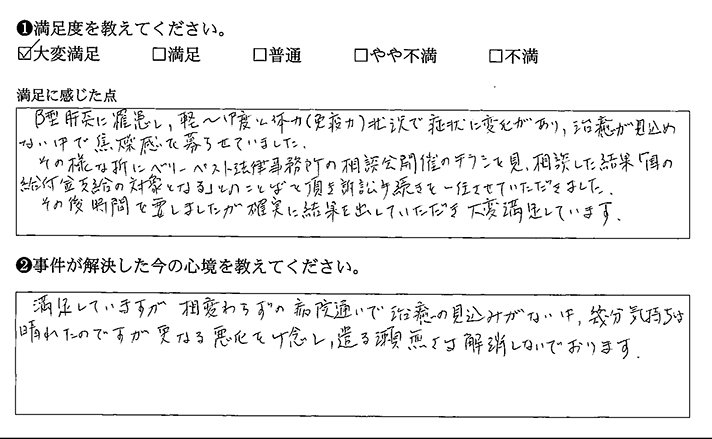 ❶満足度を教えてください。
☑大変満足 □満足 □普通 □やや不満 □不満
満足に感じた点
B型肝炎に罹患し、軽〜中度と体力(免疫力)状況で症状に変化があり、治癒が見込め
ない中で焦燥感で暮らせていました。
その様な折にベリーベスト法律事務所の相談会開催のチラシを見、相談した結果「国の
給付金支給の対象となる」とのことばを頂き訴訟手続きを一任させていただきました。
その後時間を要しましたが確実に結果を出していただき大変満足しています。
❷事件が解決した今の心境を教えてください。
満足していますが 相変わらずの病院通いで治癒の見込みがない中、幾分気持ちは
晴れたのですが更なる悪化をケ念し、遣る瀬無さは解消しないでおります。